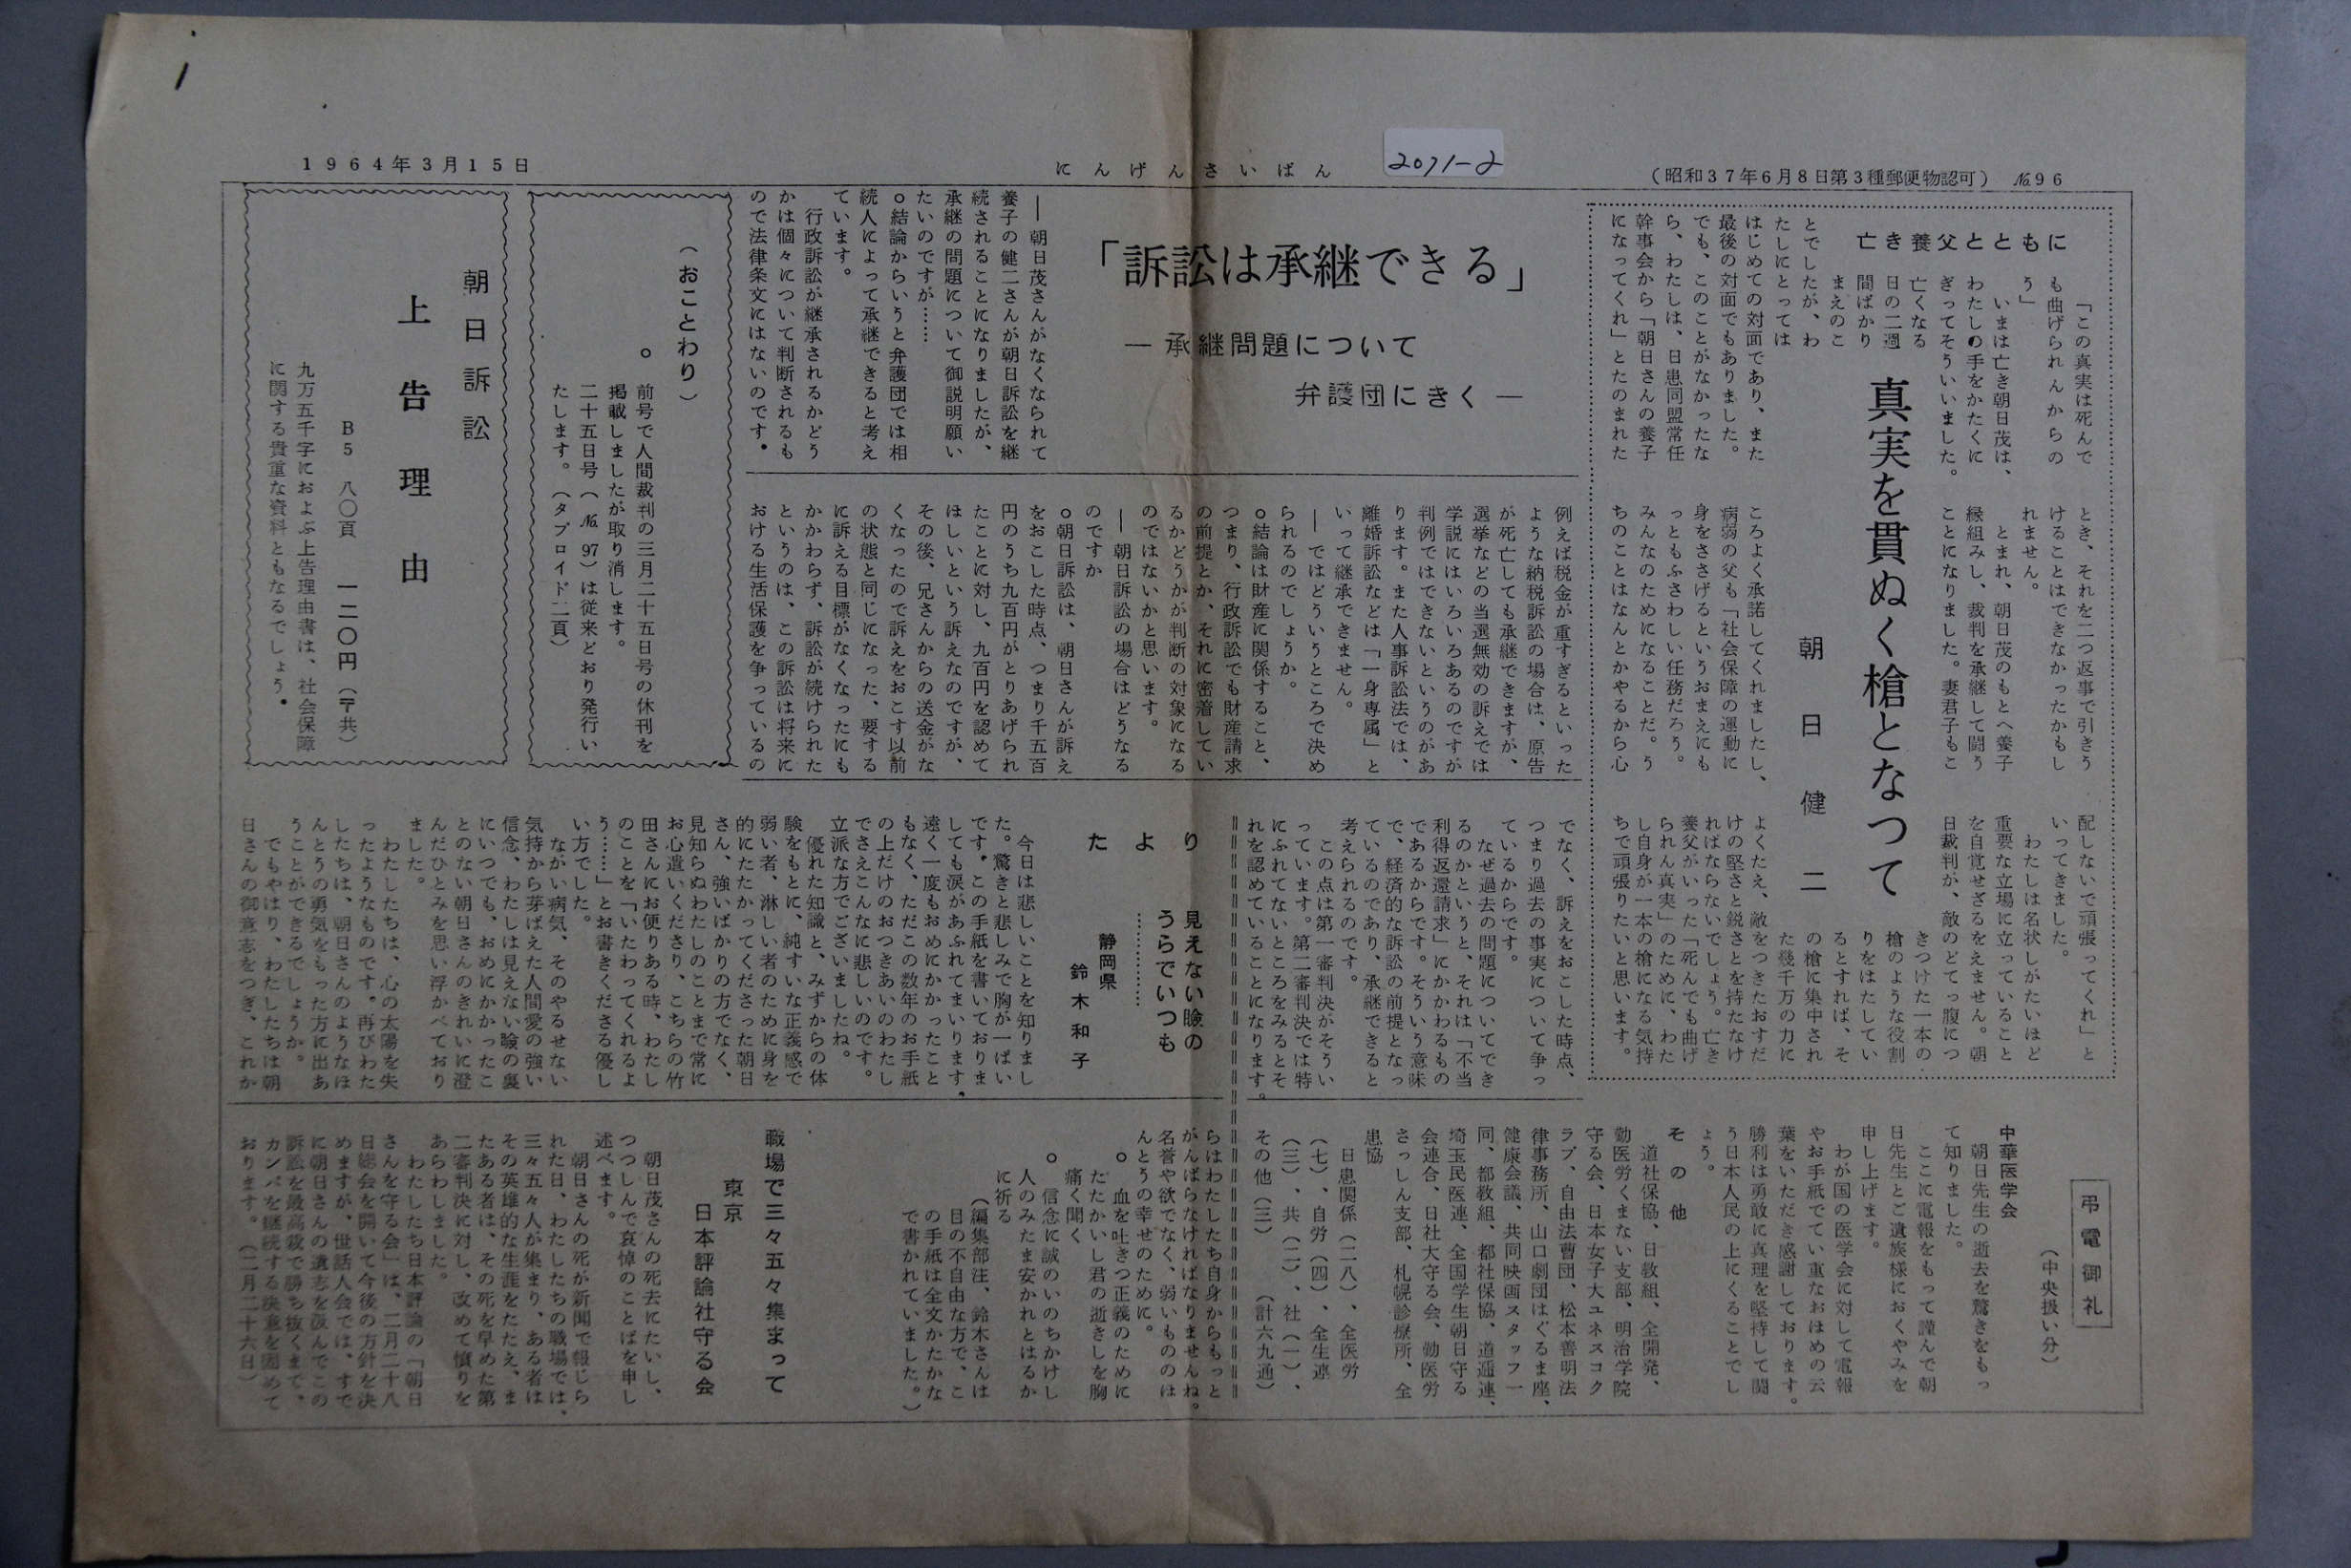 1964年3月15日
にんげんさいばん
2071-2
(昭和37年6月8日第3種郵便物認可) №96
亡き養父とともに
真実を貫ぬく槍となつて
朝日健二
「この真実は死んで
も曲げられんからの
う」
いまは亡き朝日茂は、
わたしの手をかたくに
ぎってそういいました。
亡くなる
日の二週
間ばかり
まえのこ
とでしたが、わ
たしにとっては
はじめての対面であり、また
最後の対面でもありました。
でも、このことがなかったな
ら、わたしは、日患同盟常任
幹事会から「朝日さんの養子
になってくれ」とたのまれた
とき、それを二つ返事で引きう
けることはできなかったかもし
れません。
とまれ、朝日茂のもとへ養子
縁組みし、裁判を承継して闘う
ことになりました。妻君子もこ
ころよく承諾してくれましたし、
病弱の父も「社会保障の運動に
身をささげるというおまえにも
っともふさわしい任務だろう。
みんなのためになることだ。う
ちのことはなんとかやるから心
配しないで頑張ってくれ」と
いってきました。
わたしは名状しがたいほど
重要な立場に立っていること
を自覚せざるをえません。朝
日裁判が、敵のどてっ腹につ
きつけた一本の
槍のような役割
りをはたしてい
るとすれば、そ
の槍に集中され
た幾千万の力に
よくたえ、敵をつきたおすだ
けの堅さと鋭さとを持たなけ
ればならないでしょう。亡き
養父がいった「死んでも曲げ
られん真実」のために、わた
し自身が一本の槍になる気持
ちで頑張りたいと思います。
「訴訟は承継できる」
―承継問題について
弁護団にきく―
―朝日茂さんがなくなられて
養子の健二さんが朝日訴訟を継
続されることになりましたが、
承継の問題について御説明願い
たいのですが……
○結論からいうと弁護団では相
続人によって承継できると考え
ています。
行政訴訟が継承されるかどう
かは個々について判断されるも
ので法律条文にはないのです。
例えば税金が重すぎるといった
ような納税訴訟の場合は、原告
が死亡しても承継できますが、
選挙などの当選無効の訴えでは
学説にはいろいろあるのですが
判例ではできないというのがあ
ります。また人事訴訟法では、
離婚訴訟などは「一身専属」と
いって継承できません。
―ではどういうところで決め
られるのでしょうか。
○結論は財産に関係すること、
つまり、行政訴訟でも財産請求
の前提とか、それに密着してい
るかどうかが判断の対象になる
のではないかと思います。
―朝日訴訟の場合はどうなる
のですか
○朝日訴訟は、朝日さんが訴え
をおこした時点、つまり千五百
円のうち九百円がとりあげられ
たことに対し、九百円を認めて
ほしいという訴えなのですが、
その後、兄さんからの送金がな
くなったので訴えをおこす以前
の状態と同じになった、要する
に訴える目標がなくなったにも
かかわらず、訴訟が続けられた
というのは、この訴訟は将来に
おける生活保護を争っているの
でなく、訴えをおこした時点、
つまり過去の事実について争っ
ているからです。
なぜ過去の問題についてでき
るのかというと、それは「不当
利得返還請求」にかかわるもの
であるからです。そういう意味
で、経済的な訴訟の前提となっ
ているのであり、承継できると
考えられるのです。
この点は第一審判決がそうい
っています。第二審判決では特
にふれてないところをみるとそ
れを認めていることになります。
(おことわり)
○前号で人間裁判の三月二十五日号の休刊を
掲載しましたが取り消します。
二十五日号(№97)は従来どおり発行い
たします。(タブロイド二頁)
朝日訴訟
上告理由
B5 八〇頁 一二〇円(〒共)
九万五千字におよぶ上告理由書は、社会保障
に関する貴重な資料ともなるでしょう。
たより
見えない瞼の
うらでいつも
…………
静岡県
鈴木和子
今日は悲しいことを知りまし
た。驚きと悲しみで胸が一ぱい
です。この手紙を書いておりま
しても涙があふれてまいります。
遠く一度もおめにかかったこと
もなく、ただこの数年のお手紙
の上だけのおつきあいのわたし
でさえこんなに悲しいのです。
立派な方でございましたね。
優れた知識と、みずからの体
験をもとに、純すいな正義感で
弱い者、淋しい者のために身を
的にたたかってくださった朝日
さん、強いばかりの方でなく、
見知らぬわたしのことまで常に
お心遣いくださり、こちらの竹
田さんにお便りある時、わたし
のことを「いたわってくれるよ
う……」とお書きくださる優し
い方でした。
ながい病気、そのやるせない
気持から芽ばえた人間愛の強い
信念、わたしは見えない瞼の裏
にいつでも、おめにかかったこ
とのない朝日さんのきれいに澄
んだひとみを思い浮かべており
ました。
わたしたちは、心の太陽を失
ったようなものです。再びわた
したちは、朝日さんのようなほ
んとうの勇気をもった方に出あ
うことができるでしょうか。
でもやはり、わたしたちは朝
日さんの御意志をつぎ、これか
らはわたしたち自身からもっと
がんばらなければなりませんね。
名誉や欲でなく、弱いもののほ
んとうの幸せのために。
○血を吐きつ正義のために
たたかいし君の逝きしを胸
痛く聞く
○信念に誠のいのちかけし
人のみたま安かれとはるか
に祈る
(編集部注、鈴木さんは
目の不自由な方で、こ
の手紙は全文かたかな
で書かれていました。)
職場で三々五々集まって
東京
日本評論社守る会
朝日茂さんの死去にたいし、
つつしんで哀悼のことばを申し
述べます。
朝日さんの死が新聞で報じら
れた日、わたしたちの職場では、
三々五々人が集まり、ある者は
その英雄的な生涯をたたえ、ま
たある者は、その死を早めた第
二審判決に対し、改めて憤りを
あらわしました。
わたしたち日本評論の「朝日
さんを守る会」は、二月二十八
日総会を開いて今後の方針を決
めますが、世話人会では、すで
に朝日さんの遺志を汲んでこの
訴訟を最高裁で勝ち抜くまで、
カンパを継続する決意を固めて
おります。(二月二十六日)
弔電御礼
(中央扱い分)
中華医学会
朝日先生の逝去を驚きをもっ
て知りました。
ここに電報をもって謹んで朝
日先生とご遺族様におくやみを
申し上げます。
わが国の医学会に対して電報
やお手紙でてい重なおほめの云
葉をいただき感謝しております。
勝利は勇敢に真理を堅持して闘
う日本人民の上にくることでし
ょう。
その他
道社保協、日教組、全開発、
勤医労くまない支部、明治学院
守る会、日本女子大ユネスコク
ラブ、自由法曹団、松本善明法
律事務所、山口劇団はぐるま座、
健康会議、共同映画スタッフ一
同、都教組、都社保協、道逓連、
埼玉民医連、全国学生朝日守る
会連合、日社大守る会、勤医労
さっしん支部、札幌診療所、全
患協
日患関係(二八)、全医労
(七)、自労(四)、全生連
(三)、共(二)、社(一)、
その他(三) (計六九通)